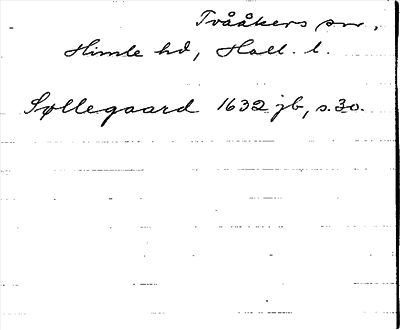 Tvååkers sn,
Himle hd, Hall. l.
Søllegaard 1632 jb, s. 30.